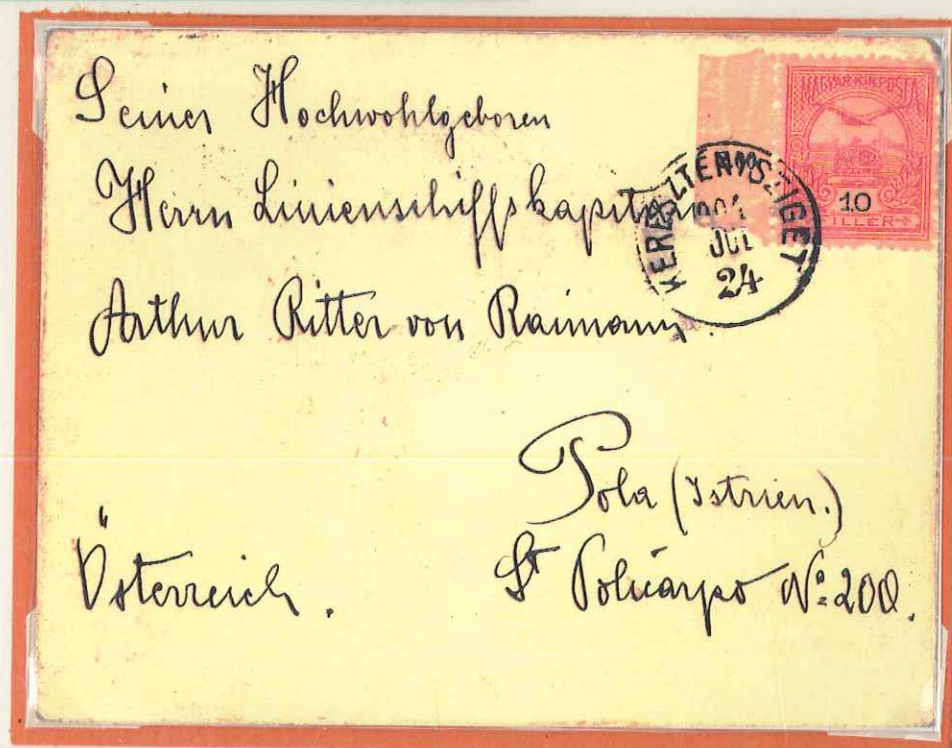 Seiner Hochwohlgeboren
Herrn Linienschiffskapitän
Arthur Ritter von Raimann.
Pola (Istrien.)
Österreich.
St Policarpo No: 200.
MAGYAR KIR. POSTA
10
FILLER
904
JUL
24